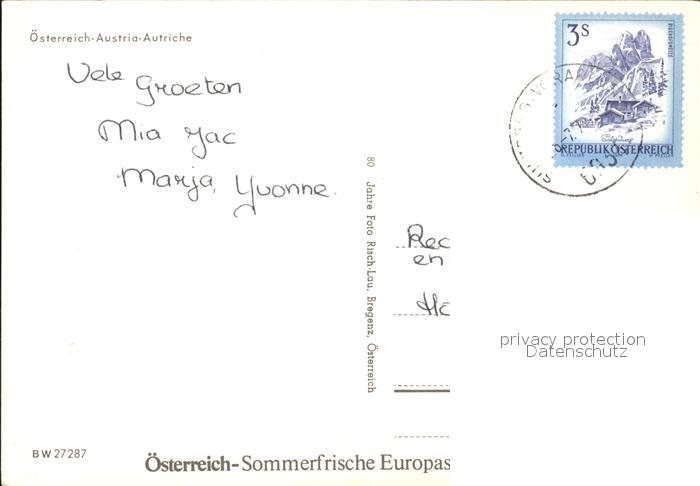 Österreich-Austria-Autriche
Vele Groeten
Mia Jac
Marja, Yvonne.
3s
REPUBLIK ÖSTERREICH
80 Jahre Foto Risch-Lau, Bregenz, Österreich
Rec
en
Ho
privacy protection
Datenschutz
BW 27287
Österreich-Sommerfrische Europas